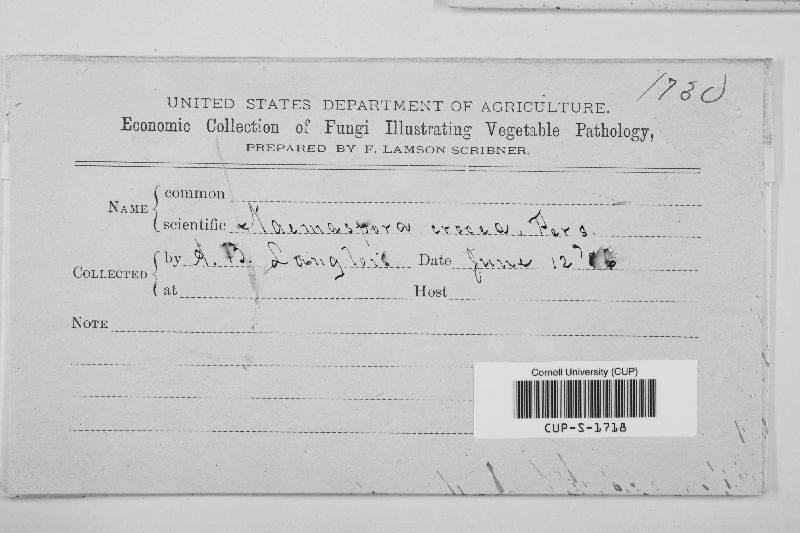 1730
UNITED STATES DEPARTMENT OF AGRICULTURE.
Economic Collection of Fungi Illustrating Vegetable Pathology,
PREPARED BY F. LAMSON SCRIBNER.
NAME { common
scientific Naemaspora crocea, Pers.
COLLECTED { by A. B. Langlois Date June 12
at Host
NOTE
Cornell University (CUP)
CUP-S-1718